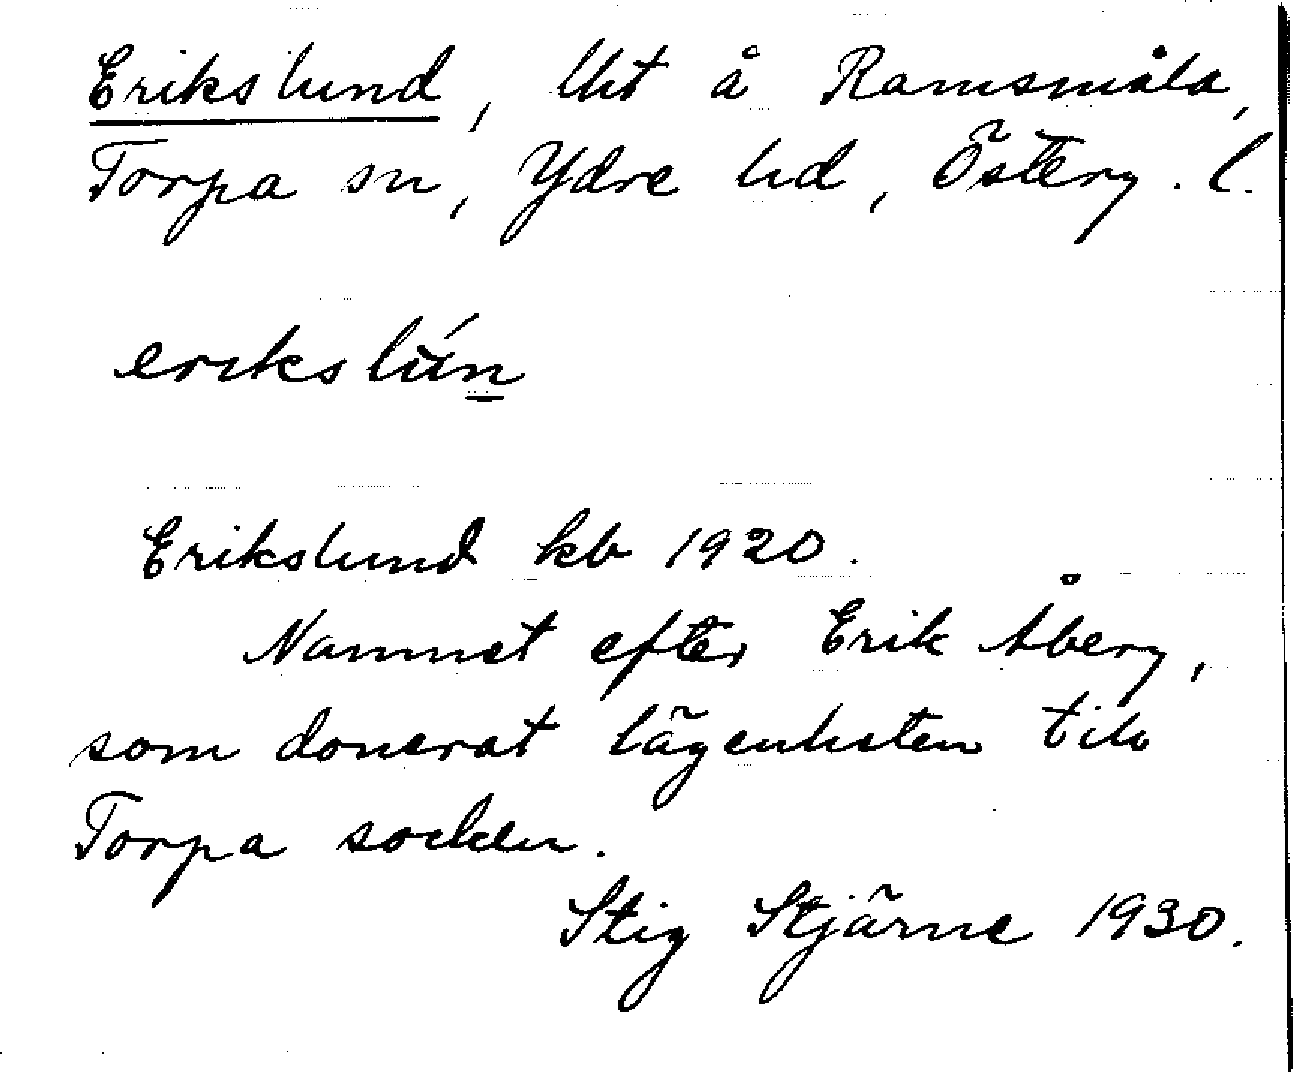 Erikslund, lht å Ramsmåla,
Torpa sn, Ydre hd, Österg. l.
erikslún
Erikslund kb 1920.
Namnet efter Erik Åberg,
som donerat lägenheten till
Torpa socken.
Stig Stjärne 1930.